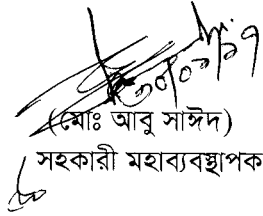 (মোঃ আবু সাঈদ)
সহকারী মহাব্যবস্থাপক